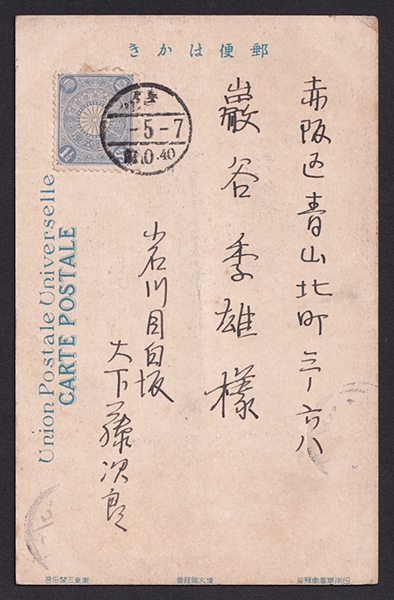 きかは便郵
赤阪区青山北町三ノ六八
巖谷季雄様
小石川目白坂
大下藤次郎
-5-7
0.40
Union Postale Universelle
CARTE POSTALE